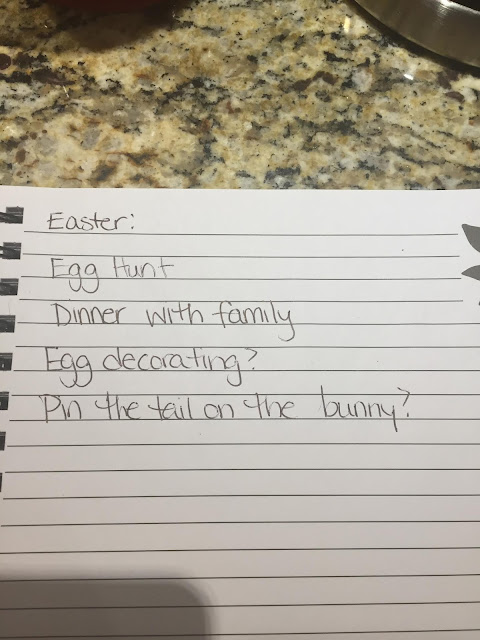 Easter:
Egg Hunt
Dinner with family
Egg decorating?
Pin the tail on the bunny?